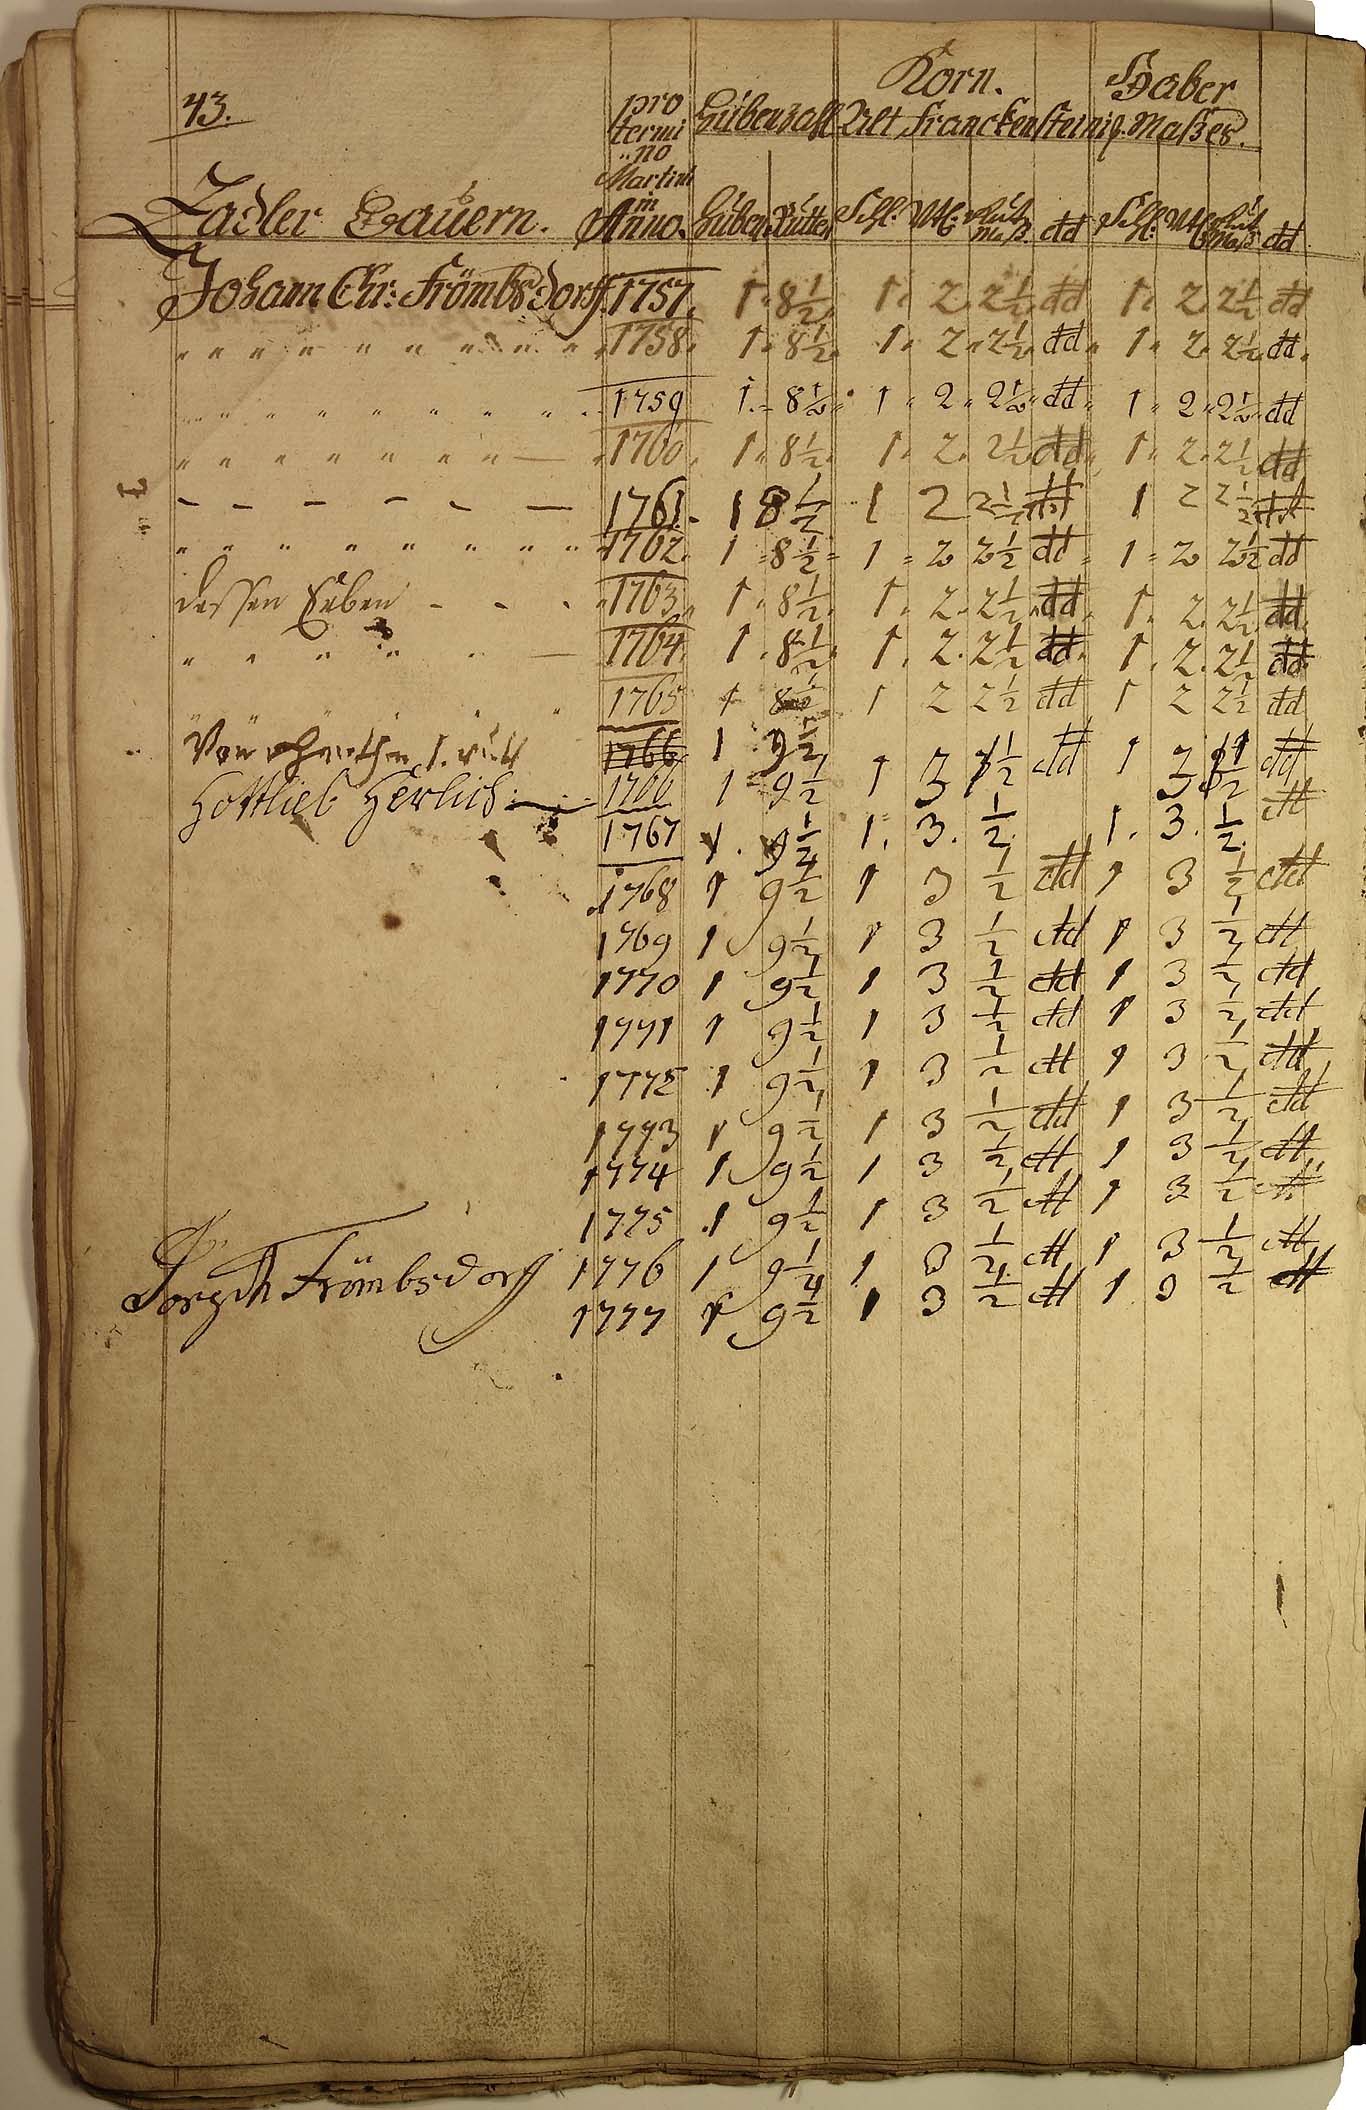 43.
Korn. Haber
pro termi no Martini in Anno. Hubenzahl Alt Franckensteinig. Maßes.
Zadler Bauern. Huben Rutten Schl: Vtl: Maß. dd Schl: Vtl Maß dd
Johann Chr: Frömbsdorff. 1757. 1. 8 1/2 1. 2. 2 1/2 dd 1. 2. 2 1/2 dd
" " " " " " " " " 1758. 1. 8 1/2. 1. 2. 2 1/2 dd 1. 2. 2 1/2 dd.
" " " " " " " " 1759 1. 8 1/2 1 2 2 1/2 dd 1 2 2 1/2 dd
" " " " " " " " — 1760. 1. 8 1/2. 1. 2. 2 1/2 dd 1. 2. 2 1/2 dd
– – – – – – – 1761. 1 8 1/2 1 2 2 1/2 dd 1 2 2 1/2 dd
" " " " " " " " " 1762. 1 8 1/2 1 2 2 1/2 dd 1 2 2 1/2 dd
dessen Erben - - - 1763. 1. 8 1/2. 1. 2. 2 1/2 dd 1. 2. 2 1/2 dd
" " " " " — 1764. 1. 8 1/2. 1. 2. 2 1/2 dd. 1. 2. 2 1/2 dd
1765 1 8 1/2 1 2 2 1/2 dd 1 2 2 1/2 dd
Von 1. 1766 1 9 1/2
Gottlieb Herlich: — 1766 1 9 1/2 1 3 1/2 dd 1 3 1/2 dd
1767 1. 9 1/2 1. 3. 1/2. 1. 3. 1/2. dd
1768 1 9 1/2 1 3 1/2 dd 1 3 1/2 dd
1769 1 9 1/2 1 3 1/2 dd 1 3 1/2 dd
1770 1 9 1/2 1 3 1/2 dd 1 3 1/2 dd
1771 1 9 1/2 1 3 1/2 dd 1 3 1/2 dd
1772 1 9 1/2 1 3 1/2 dd 1 3 1/2 dd
1773 1 9 1/2 1 3 1/2 dd 1 3 1/2 dd
1774 1 9 1/2 1 3 1/2 dd 1 3 1/2 dd
1775 1 9 1/2 1 3 1/2 dd 1 3 1/2 dd
Frömbsdorff 1776 1 9 1/2 1 3 1/2 dd 1 3 1/2 dd
1777 1 9 1/2 1 3 1/2 dd 1 3 1/2 dd